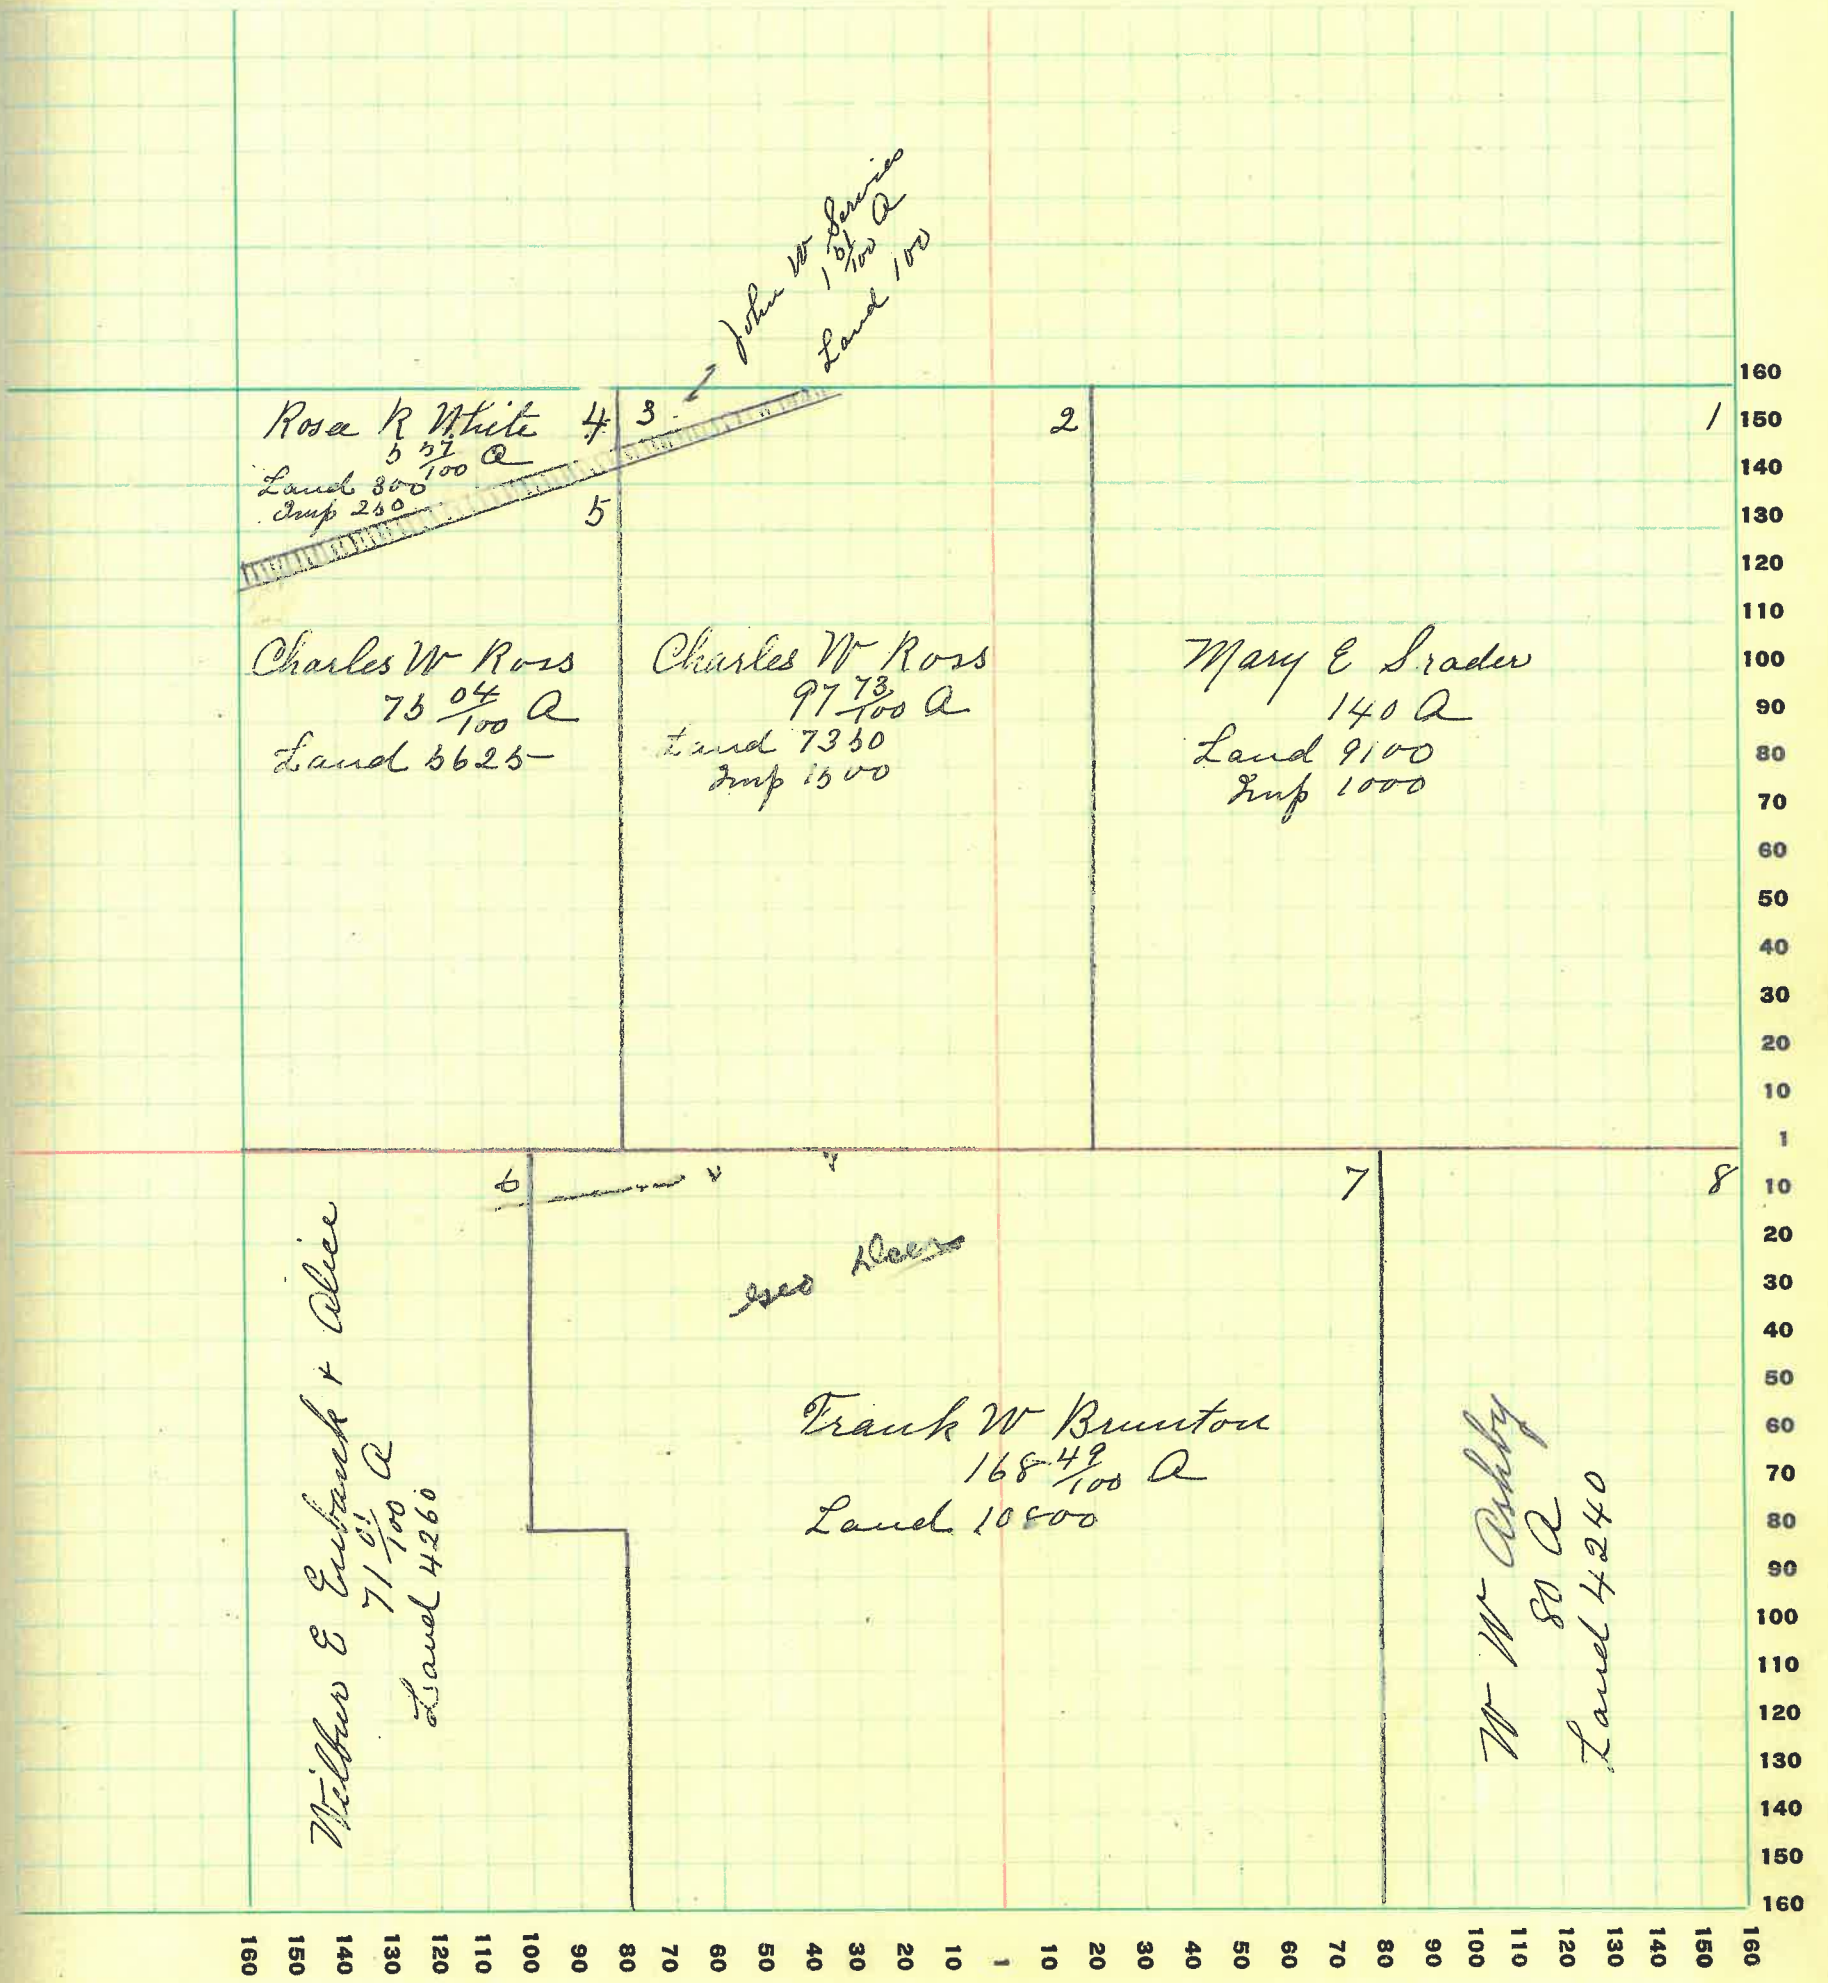 John W Servies
1 51/100 A
Land 100
Rosa R White
5 57/100 A
Land 300
Imp 250
4
3
2
1
5
Charles W Ross
75 04/100 A
Land 5625
Charles W Ross
97 73/100 A
Land 7350
Imp 1500
Mary E Srader
140 A
Land 9100
Imp 1000
6
7
8
Geo
Wilbur E Eubank + Alice
71 01/100 A
Land 4260
Frank W Brunton
168 49/100 A
Land 10800
W W Ashby
80 A
Land 4240
160
150
140
130
120
110
100
90
80
70
60
50
40
30
20
10
1
10
20
30
40
50
60
70
80
90
100
110
120
130
140
150
160
160 150 140 130 120 110 100 90 80 70 60 50 40 30 20 10 1 10 20 30 40 50 60 70 80 90 100 110 120 130 140 150 160